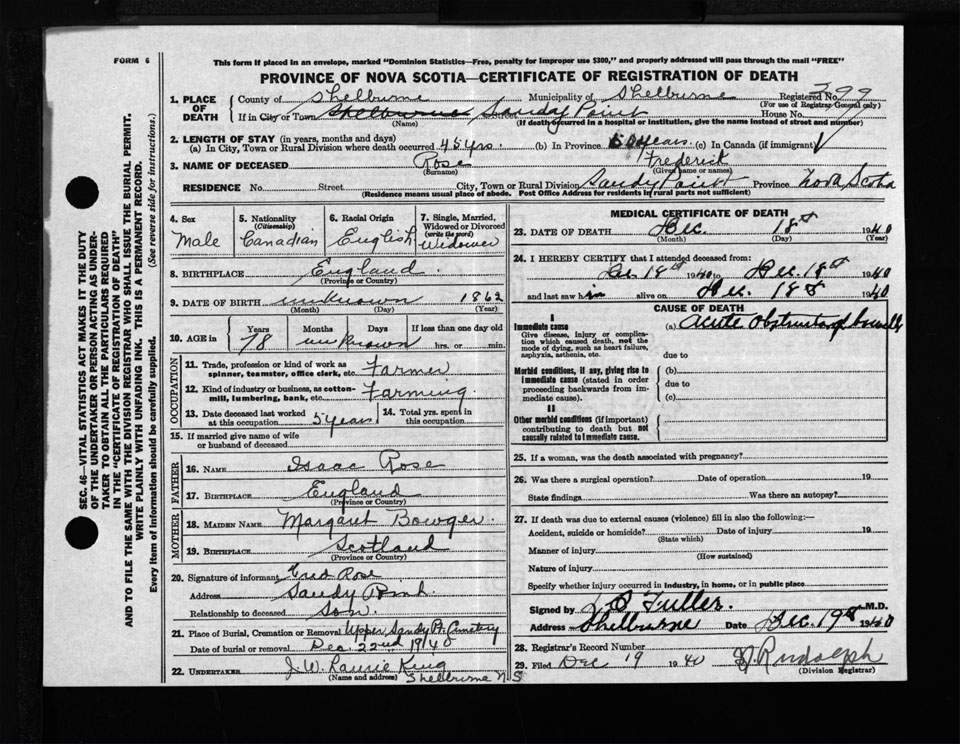 FORM 6
This form if placed in an envelope, marked "Dominion Statistics—Free, penalty for improper use $300," and properly addressed will pass through the mail "FREE"
PROVINCE OF NOVA SCOTIA—CERTIFICATE OF REGISTRATION OF DEATH
1. PLACE OF DEATH County of Shelburne Municipality of Shelburne Registered No. 399
(For use of Registrar General only)
If in City or Town Shelburne Street Sandy Point House No.
(Name) (If death occurred in a hospital or institution, give the name instead of street and number)
2. LENGTH OF STAY (in years, months and days)
(a) In City, Town or Rural Division where death occurred 45 yrs. (b) In Province 50 years (c) In Canada (if immigrant)
3. NAME OF DECEASED Rose Frederick
(Surname) (Given name or names)
RESIDENCE No. Street City, Town or Rural Division Sandy Point Province Nova Scotia
(Residence means usual place of abode. Post Office Address for Residents in rural parts not sufficient)
4. Sex Male
5. Nationality (Citizenship) Canadian
6. Racial Origin English
7. Single, Married, Widowed or Divorced (write the word) Widower
8. BIRTHPLACE England
(Province or Country)
9. DATE OF BIRTH unknown 1862
(Month) (Day) (Year)
10. AGE in Years 78 Months unknown Days If less than one day old hrs. or min.
OCCUPATION
11. Trade, profession or kind of work as spinner, teamster, office clerk, etc. Farmer
12. Kind of industry or business, as cotton-mill, lumbering, bank, etc. Farming
13. Date deceased last worked at this occupation 5 years
14. Total yrs. spent in this occupation
15. If married give name of wife or husband of deceased
FATHER
16. NAME Isaac Rose
17. BIRTHPLACE England
(Province or Country)
MOTHER
18. MAIDEN NAME Margaret Bowger
19. BIRTHPLACE Scotland
(Province or Country)
20. Signature of informant Fred Rose
Address Sandy Point
Relationship to deceased Son.
21. Place of Burial, Cremation or Removal Upper Sandy Pt. Cemetery
Date of burial or removal Dec. 22nd 1940
22. UNDERTAKER J. W. Laurie King
(Name and address) Shelburne N S
MEDICAL CERTIFICATE OF DEATH
23. DATE OF DEATH Dec. 18th 1940
(Month) (Day) (Year)
24. I HEREBY CERTIFY that I attended deceased from:
Dec 18th 1940 to Dec. 18th 1940
and last saw him alive on Dec. 18th 1940
CAUSE OF DEATH
I
Immediate cause (a) Acute obstruction of bowells
Give disease, injury or complication which caused death, not the mode of dying, such as heart failure, asphyxia, asthenia, etc.
due to
Morbid conditions, if any, giving rise to immediate cause (stated in order proceeding backwards from immediate cause).
(b)
due to
(c)
II
Other morbid conditions (if important) contributing to death but not causally related to immediate cause.
25. If a woman, was the death associated with pregnancy?
26. Was there a surgical operation? Date of operation 19
State findings Was there an autopsy?
27. If death was due to external causes (violence) fill in also the following:—
Accident, suicide or homicide? Date of injury 19
(State which)
Manner of injury
(How sustained)
Nature of injury
Specify whether injury occurred in industry, in home, or in public place
Signed by Fuller. M.D.
Address Shelburne Date Dec. 19th 1940
28. Registrar's Record Number
29. Filed Dec 19 1940 Rudolph
(Division Registrar)
SEC. 46—VITAL STATISTICS ACT MAKES IT THE DUTY
OF THE UNDERTAKER OR PERSON ACTING AS UNDER-
TAKER TO OBTAIN ALL THE PARTICULARS REQUIRED
IN THE "CERTIFICATE OF REGISTRATION OF DEATH"
AND TO FILE THE SAME WITH THE DIVISION REGISTRAR WHO SHALL ISSUE THE BURIAL PERMIT.
WRITE PLAINLY WITH UNFADING INK. THIS IS A PERMANENT RECORD.
Every item of information should be carefully supplied. (See reverse side for instructions.)